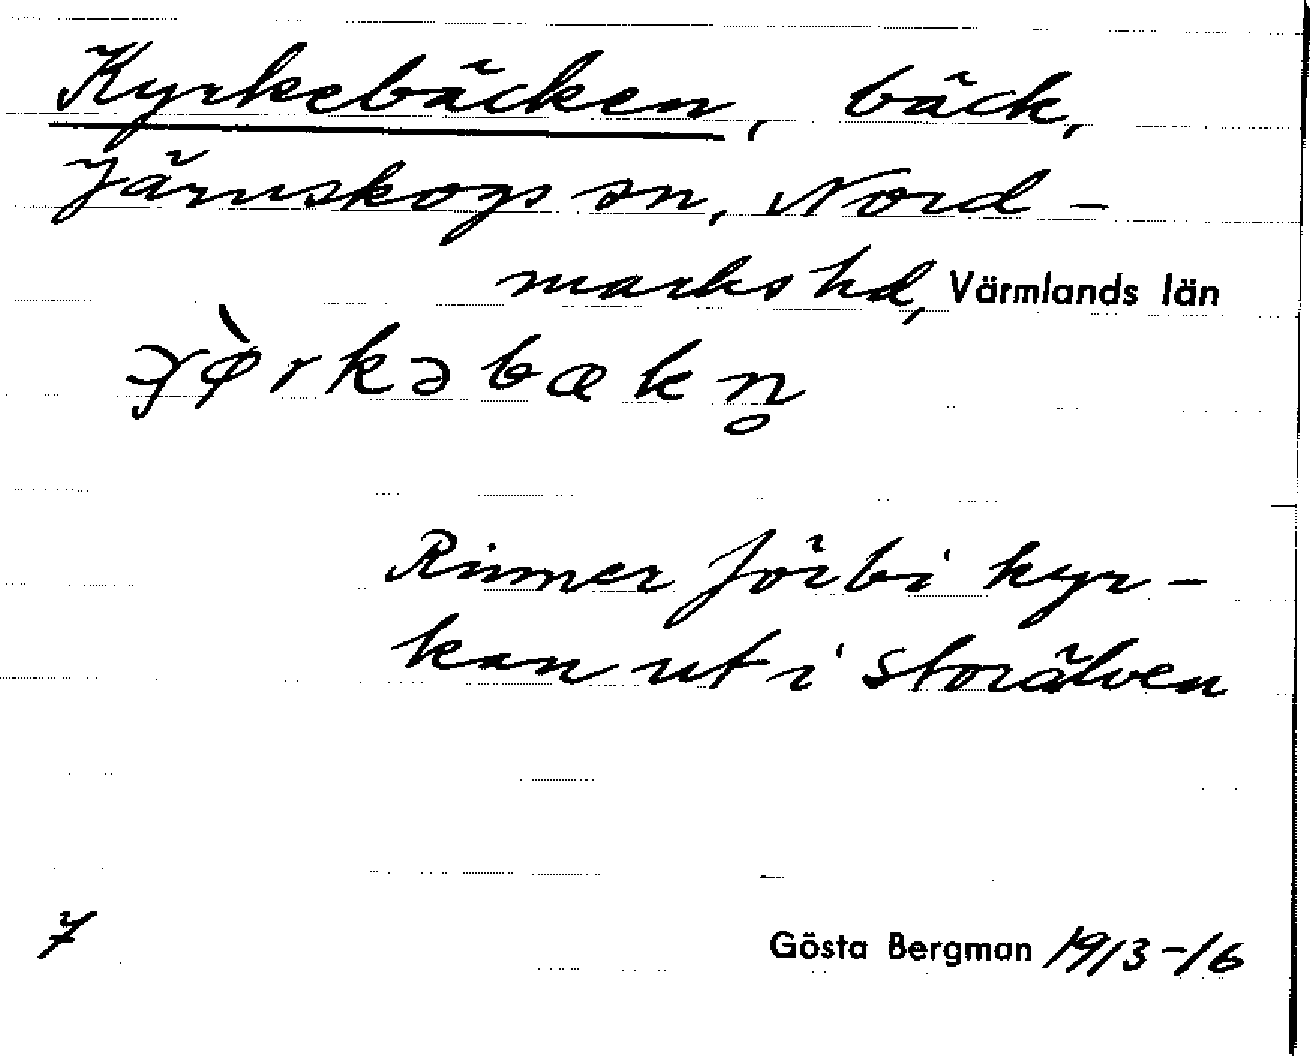 Kyrkebäcken, bäck,
Järnskogs sn, Nord-
marks hd, Värmlands län
ɟø̀rkəbækn̥
Rinner förbi kyr-
kan ut i Storälven
7
Gösta Bergman 1913-16